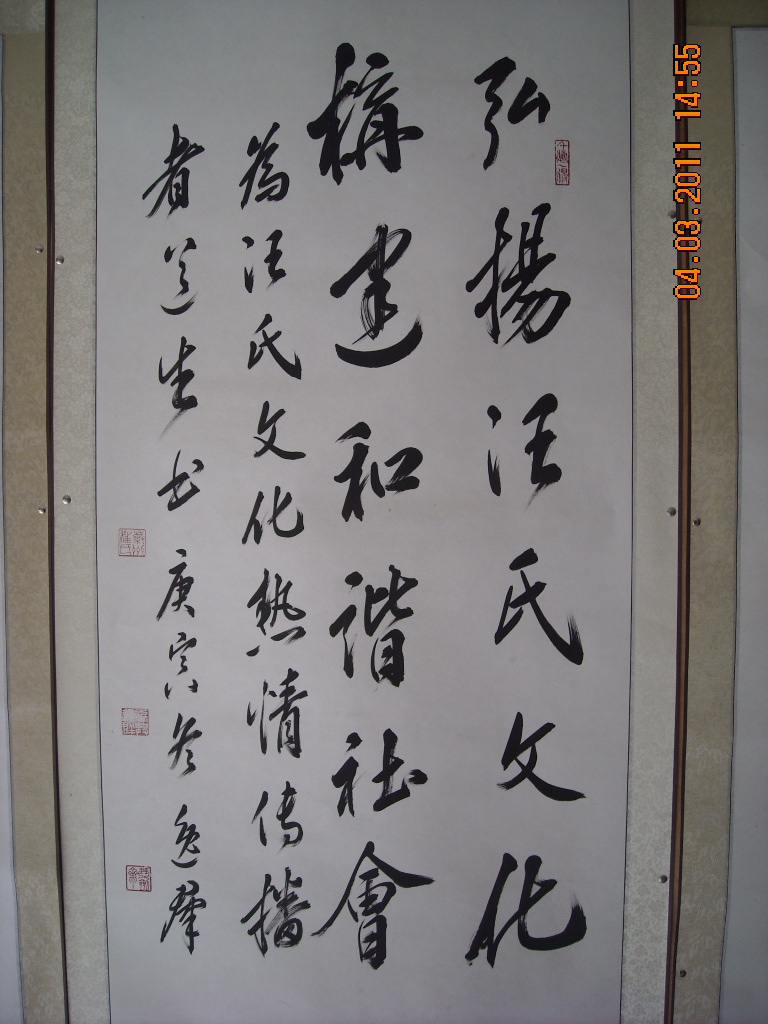 弘揚汪氏文化
構建和諧社會
為汪氏文化熱情傳播
者道生书庚寅冬逸群
04.03.2011 14:55